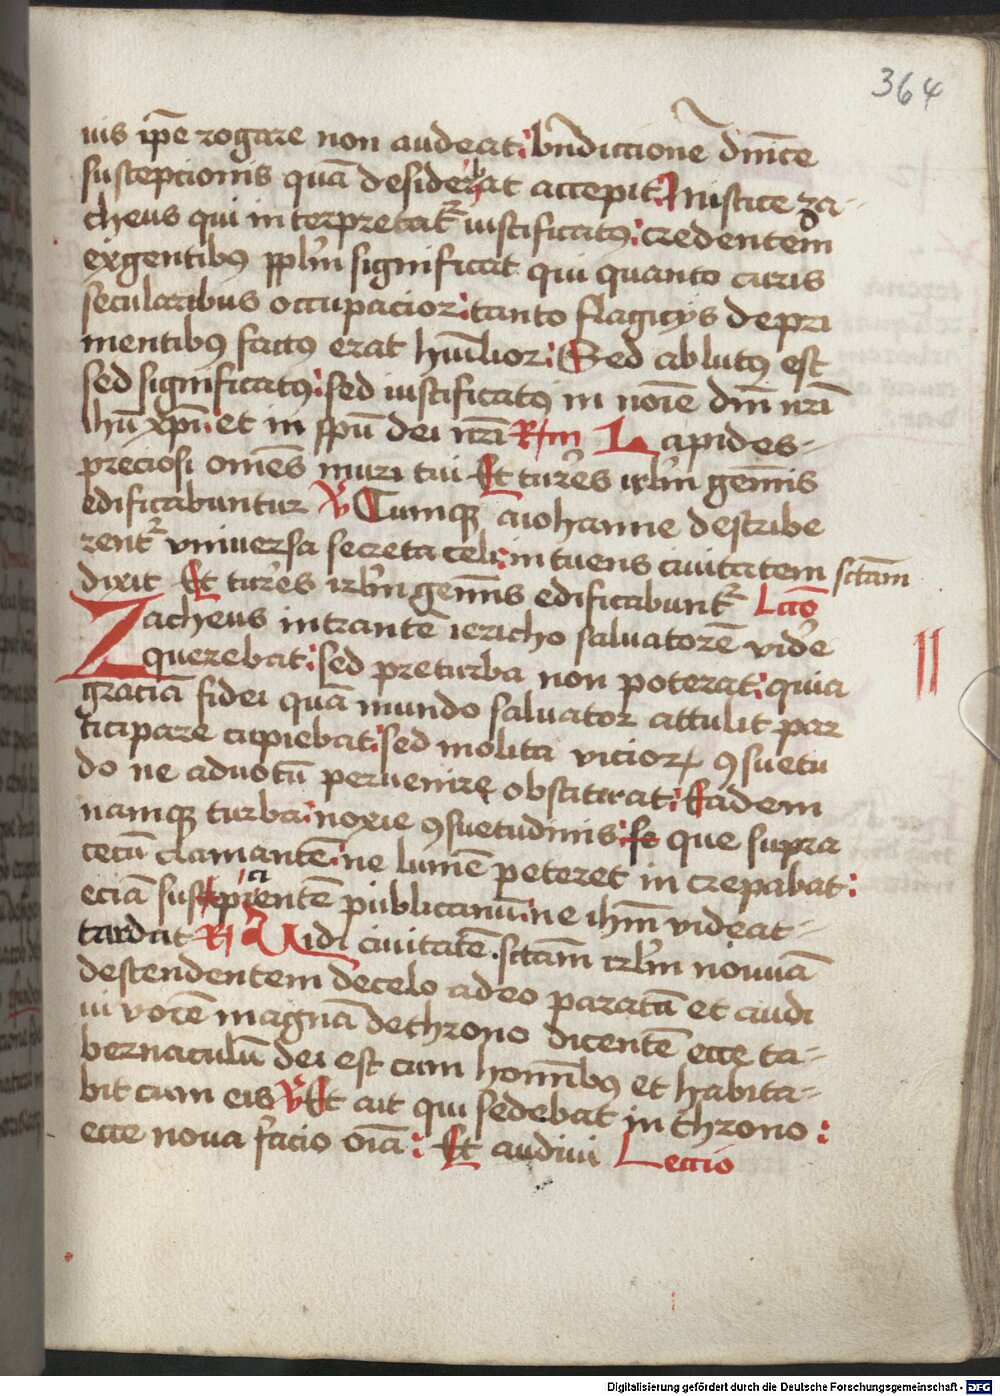 364
uis ip̄e rogare non audeat: bn̄diccionē dn̄ice
suscepcionis quā desiderat accepit: Mistice za-
cheus qui interpretatᷣ iustificatꝰ: credentem
ex gentibꝰ pplm̄ significat qui quanto curis
secularibus occupacior: tanto flagicijs depri
mentibꝰ factꝰ erat humīlior: Sed ablutꝰ est
sed significatꝰ: sed iustificatꝰ in noīe dn̄i nr̄i
ihū xp̄i: et in spū dei nr̄i R/m Lapides-
preciosi omēs muri tui Et turēs irlm̄ gem̄is
edificabuntur V̄ Cumqꝫ a iohanne describe
rentᷣ vniuersa secreta celi: intuens ciuitatem sctām
dixit Et turēs irlm̄ gem̄is edificabuntᷣ Lcc̄o
Zacheus intrantē iericho saluatorē vidē
querebat: sed pre turba non poterat: quia
graciā fidei quā mundo saluator attulit par
ticipare cupiebat: sed molita vicioꝝ ꝯsuetu
do ne ad uotū peruenire obstiterat: Eadem
namqꝫ turba: noxie ꝯsuetudinis: se que supra
cecū clamantē: ne lumē peteret increpabat:
eciā suscipientē publicanū: ne ihm̄ videat-
tardat R/ Uidi ciuitatē sctām irlm̄ nouuā
descendentem de celo a deo paratā et audi
ui vocē magnā de throno dicentē ecce ta-
bernaculū dei est cum homībꝰ et habita-
bit cum eis V̄ Et ait qui sedebat in throno:
ecce noua facio oīa: Et audiui Leccio
II
Digitalisierung gefördert durch die Deutsche Forschungsgemeinschaft - DFG